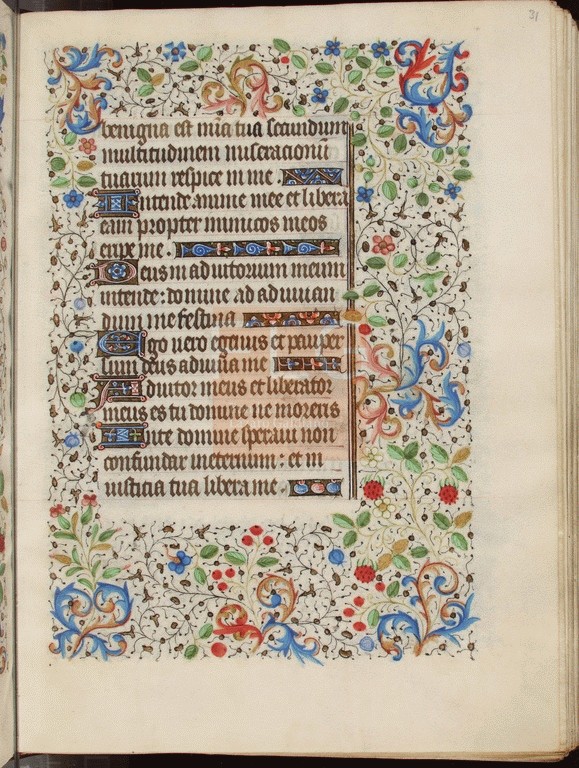 31
benigna est mīa tua secundum
multitudinem miseracionū
tuarum respice in me .
Intende anime mee et libera
eam propter inimicos meos
eripe me .
Deus in adiutorium meum
intende : domine ad adiuuan
dum me festina
Ego uero egenus et pauper
sum deus adiuua me
Adiutor meus et liberator
meus es tu domine ne moreris
In te domine speraui non
confundar ineternum : et in
iusticia tua libera me .